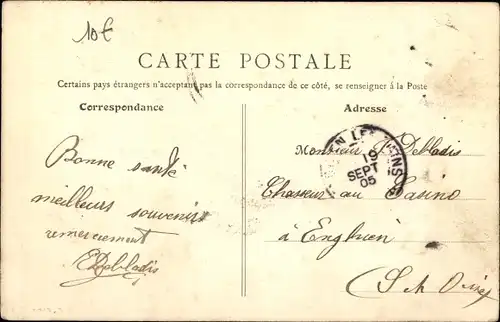 10€
CARTE POSTALE
Certains pays étrangers n'acceptant pas la correspondance de ce côté, se renseigner à la Poste
Correspondance
Adresse
Bonne santé
meilleurs souvenirs
remerciement
EDebladis
Monsieur Debladis
Chasseur au Casino
à Enghien
S et Oise
19
SEPT
05